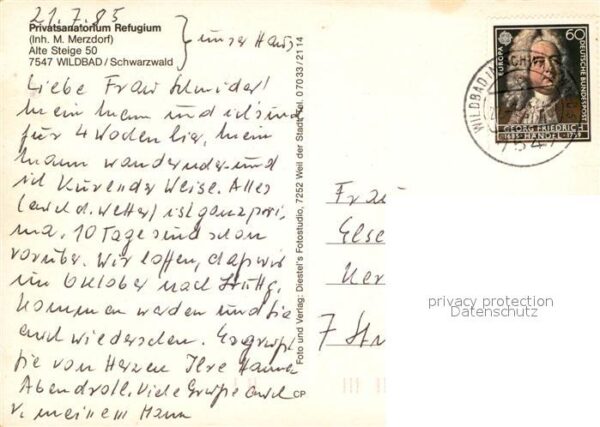 21.7.85
Privatsanatorium Refugium
(Inh. M. Merzdorf)
Alte Steige 50
7547 WILDBAD / Schwarzwald
unser Haus
Liebe Frau Schnider!
Mein Mann und ich sind
für 4 Wochen hier, mein
Mann wandernder- und
ich Kurender Weise. Alles
(auch d. Wetter) ist ganz pri-
ma. 10 Tage sind schon
vorüber. Wir hoffen, daß wir
im Oktober nach Stuttg.
kommen werden und Sie
auch wiedersehen. Es grüßt
Sie von Herzen Ihre Hanna
Abendroth. Viele Grüße auch
v. meinem Mann
Foto und Verlag: Diestel's Fotostudio, 7252 Weil der Stadt, Tel. 07033/2114
CP
EUROPA
60
DEUTSCHE BUNDESPOST
GEORG FRIEDRICH
1685 HÄNDEL 1759
WILDBAD
7547
Frau
Else
7
privacy protection
Datenschutz